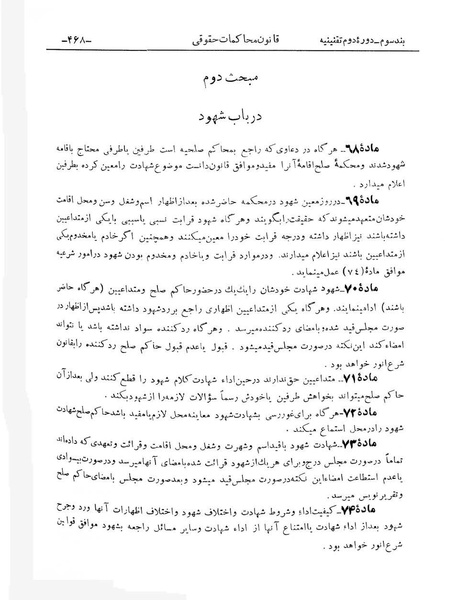 بند سوم ـ دورهٔ دوم تقنینیه قانون محاکمات حقوقی ـ۴۶۸ـ
مبحث دوم
در باب شهود
مادهٔ ۶۸ـ هرگاه در دعاوی که راجع بمحاکم صلحیه است طرفین یا طرفی محتاج باقامه
شهود شدند و محکمهٔ صلح اقامهٔ آنرا مفید و موافق قانون دانست موضوع شهادت را معین کرده بطرفین
اعلام میدارد .
مادهٔ ۶۹ـ در روز معین شهود در محکمه حاضر شده بعد از اظهار اسم و شغل و سن و محل اقامت
خودشان متعهد میشوند که حقیقت را بگویند و هرگاه شهود قرابت نسبی یا سببی با یکی از متداعیین
داشته باشند نیز اظهار داشته و درجه قرابت خود را معین میکنند و همچنین اگر خادم یا مخدوم یکی
از متداعیین باشند نیز اعلام میدارند. و در موارد قرابت و یا خادم و مخدوم بودن شهود در امور شرعیه
موافق مادهٔ (۷۴) عمل مینماید .
مادهٔ ۷۰ـ شهود شهادت خودشان را یک یک در حضور حاکم صلح و متداعیین (هرگاه حاضر
باشند) ادا مینمایند. و هرگاه یکی از متداعیین اظهاری راجع برد شهود داشته باشد پس از اظهار در
صورت مجلس قید شده بامضای رد کننده میرسد . و هرگاه رد کننده سواد نداشته باشد یا نتواند
امضاء کند این نکته در صورت مجلس قید میشود . قبول یا عدم قبول حاکم صلح رد کننده را بقانون
شرع انور خواهد بود .
مادهٔ ۷۱ـ متداعیین حق ندارند در حین اداء شهادت کلام شهود را قطع کنند ولی بعد از آن
حاکم صلح میتواند بخواهش طرفین یا خودش رسماً سؤالات لازمه را از شهود بکند .
مادهٔ ۷۲ـ هرگاه برای غوررسی بشهادت شهود معاینه محل لازم یا مفید باشد حاکم صلح شهادت
شهود را در محل استماع میکند .
مادهٔ ۷۳ـ شهادت شهود با قید اسم و شهرت و شغل و محل اقامت و قرائت و تعهدی که داده‌اند
تماماً در صورت مجلس درج و برای هر یک از شهود قرائت شده بامضای آنها میرسد و در صورت بیسوادی
یا عدم استطاعت امضاء این نکته در صورت مجلس قید میشود و بعد صورت مجلس بامضای حاکم صلح
و تقریر نویس میرسد .
مادهٔ ۷۴ـ کیفیت اداء و شروط شهادت و اختلاف شهود و اختلاف اظهارات آنها و رد و جرح
شهود بعد از اداء شهادت یا امتناع آنها از اداء شهادت و سایر مسائل راجعه بشهود موافق قوانین
شرع انور خواهد بود .